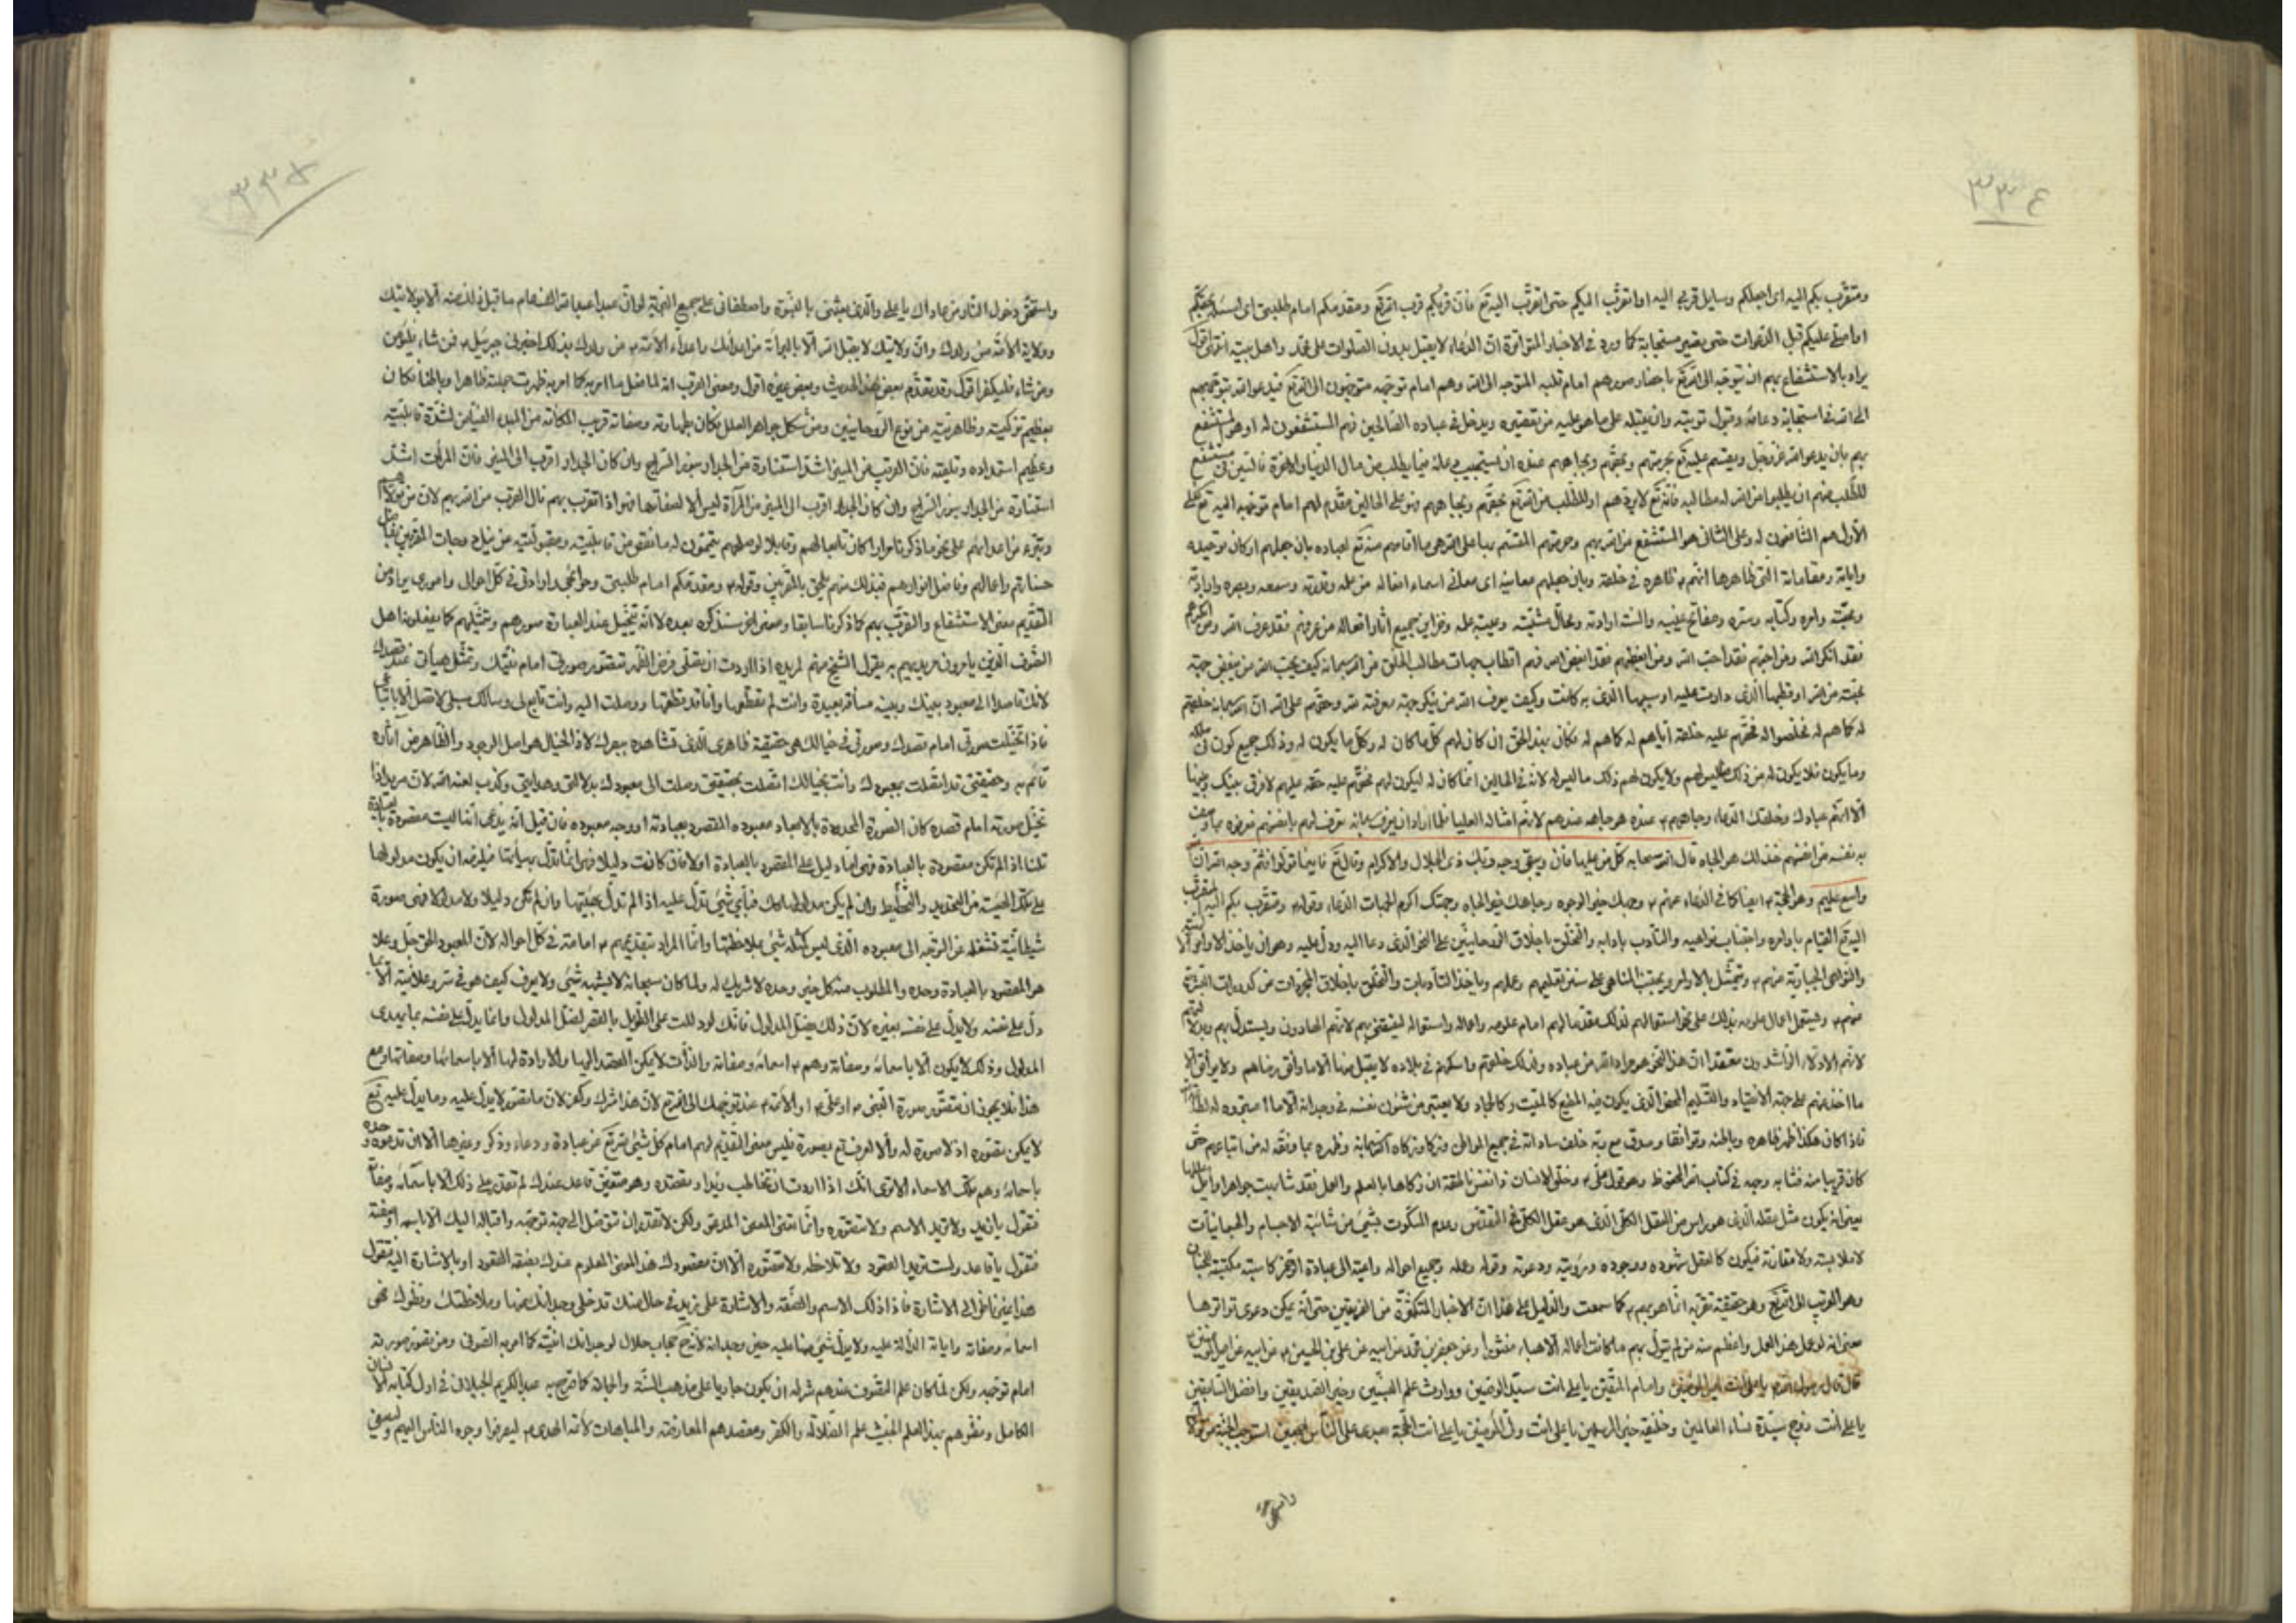 ٣٣٤
ومتقرّب بكم اليه اى اجعلكم وسايل قربى اليه او اتقرّب اليكم حتى اتقرّب اليه تع فان قربكم قرب اللّه تع ومقدمكم امام طلبتى اى اسئله بحقكم
او اصلى عليكم قبل الدعوات حتى تصير مستجابة كما ورد فى الاخبار المتواترة ان الدعاء لا يقبل بدون الصلوات على محمد واهل بيته انتهى اقول
يراد بالاستشفاع بهم ان يتوجه الى اللّه تع باحضار صورهم امام قلبه المتوجه الى اللّه وهم امام توجهه متوجهون الى اللّه تع فيدعو اللّه بتوجههم
الى اللّه فى استجابة دعائه وقبول توبته وان يقبله على ما هو عليه من تقصيره ويدخل فى عباده الصالحين فهم المستشفعون له او هو المستشفع
بهم بان يدعو اللّه عز وجل ويقسم عليه تع بحرمتهم وبحقهم وبجاههم عنده ان يستجيب دعائه فيما يطلب من مال الدنيا والاخرة
للطلب منهم ان يطلبوا من اللّه له مطالبه فانه تع لا يردهم او للطلب من اللّه تع بحقهم وبجاههم وعلى الحالين مقدم لهم امام توجهه اليه تع فعلى
الاول هم الشافعون له وعلى الثانى هو المستشفع من اللّه بهم وحرمتهم المقسم بها على اللّه هى ما اقامهم منه تع لعباده بان جعلهم اركان توحيده
واياته ومقاماته التى ظاهرها انهم ظاهره فى خلقه وبان جعلهم معانيه اى معانى اسماء افعاله من علمه وقدرته وسمعه وبصره وارادته
ومحبته وامره وكتابه وسره ومفاتح غيبه والسنة ارادته ومحال مشيته وعيبة علمه وخزاين جميع اثار افعاله من عرفهم فقد عرف اللّه ومن انكرهم
فقد انكر اللّه ومن احبهم فقد احب اللّه ومن ابغضهم فقد ابغض اللّه فهم اقطاب جهات مطالب الخلق من اللّه سبحانه كيف يحب اللّه من يبغض جهة
محبته من اللّه او قطبها الذى دارت عليه او سببها الذى به كانت وكيف يعرف اللّه من ينكر جهة معرفته للّه وحقهم على اللّه ان اللّه سبحانه خلقهم
له كما هم له فخلصوا له فحقهم عليه خلقه اياهم له كما هم له فكان بهذا الحق ان كان لهم كل ما كان له وكل ما يكون له وذلك جميع كون فى ملكه
وما يكون فلا يكون له من ذلك ما ليس لهم ولا يكون لهم ذلك ما ليس له لانه فى الحالين انما كان له ليكون لهم فحقهم عليه حقه عليهم لا فرق بينك وبينها
الا انهم عبادك وخلقك الدعاء وجاههم عنده هو جاهه عندهم لانهم امثاله العليا فلما اراد ان يعرف عباده تعرف لهم بانفسهم فعرفوه بما وصف
به نفسه من انفسهم فذلك هو الجاه قال اللّه سبحانه كل من عليها فان ويبقى وجه ربك ذى الجلال والاكرام وقال تع فاينما تولوا فثم وجه اللّه ان اللّه
واسع عليم وهو الجهة ايضا كما فى الدعاء عنهم وجهك خير الوجوه وجاهك خير الجاه وجهتك اكرم الجهات الدعاء وقوله ومتقرب بكم اليه التقرب
اليه تع القيام باوامره واجتناب نواهيه والتأدب بادابه والتخلق باخلاق الروحانيين على النحو الذى دعا اليه ودل عليه وهو ان ياخذ الاوامر
والنواهى الجبارية عنهم ويمتثل بالاوامر ويجتنب المناهى على سنن تعليمهم وعلمهم وياخذ التأدبات والتخلق باخلاق المجردات من كدورات البشرية
منهم ويستعمل اعمال علومه بذلك على نحو استعمالهم لذلك مقدما لهم امام علومه واعماله واستعماله ليقتفى بهم لانهم الهادون ويستدل بهم
لانهم الادلاء الراشدون معتقدا ان هذا النحو هو مراد اللّه من عباده ولذلك خلقهم واسكنهم فى بلاده لا يقبل منها الا ما وافق رضاهم
ما اخذ عنهم على جهة الانقياد والتسليم المحض الذى يكون فيه المطيع كالميت وكالجماد ولا يعتبر من شئون نفسه فى وجدانه الا ما اعتبروه له
فاذا كان هكذا ظهر ظاهره وباطنه وتوافقا وصدق مع ربه خلف ساداته فى جميع المواطن وزكا وزكاه اللّه سبحانه وطهره بما وفقه له من اتباعهم حتى
كان قريبا منه فشابه وجهه فى كتاب اللّه المحفوظ وهو قول على وخلق الانسان ذا نفس ناطقة ان زكاها بالعلم والعمل فقد شابهت جواهر اوايل عللها
يعنى انه يكون مثل عقله الذى هو راس من العقل الكلى الذى هو عقل الكل فى التقدس وعدم السكون بشئ من شائبة الاجسام والجسمانيات
لا ملابسته ولا مقارنة فيكون كالعقل شهوده ووجوده ورؤيته ودعوته وقوله وعمله وجميع احواله داعية الى عبادة الرحمن كاسبة مكتسبة للجنان
وهو القرب الى اللّه تع وهو حقيقة تقربه انما هو بهم كما سمعت والدليل على هذا ان الاخبار المتكثرة من الفريقين حتى انه يمكن دعوى تواترها
معنى انه لو عمل هذا العمل واعظم منه من لم يتول بهم ما كانت اعماله الا هباء منثورا وعن جعفر بن محمد عن ابيه عن على بن الحسين عن ابيه عن امير المؤمنين
قال قال رسول اللّه يا على انت امير المؤمنين وامام المتقين يا على انت سيد الوصيين ووارث علم النبيين وخير الصديقين وافضل السابقين
يا على انت زوج سيدة نساء العالمين وخليفة خير المرسلين يا على انت ولى المؤمنين يا على انت الحجة بعدى على الناس اجمعين استوجب الجنة من تولاك
واستحق
٣٣٥
واستحق دخول النار من عاداك يا على والذى بعثنى بالنبوة واصطفانى على جميع البرية لو ان عبدا عبد اللّه الف عام ما قبل ذلك منه الا بولايتك
وولاية الائمة من ولدك وان ولايتك لا يقبل اللّه الا بالبرائة من اعدائك واعداء الائمة من ولدك بذلك اخبرنى جبرئيل فمن شاء فليؤمن
ومن شاء فليكفر اقول وقد تقدم بعض هذا الحديث وبعض غيره اقول ومعنى القرب انه لما فعل ما امر به كما امر به ظهرت جبلته ظاهرا وباطنا فكان
بعظيم تزكيته وظاهريته من نوع الروحانيين ومن شكل جواهر العلل فكان بطهارته وصفائه قريب المكانة من المبدء الفياض لشدة قابليته
وعظيم استعداده وتلقيه فان القريب من المنير اشد استنارة من الجدار بنور السراج وان كان الجدار اقرب الى المنير فان المرآت اشد
استنارة من الجدار بنور السراج وان كان الجدار اقرب الى المنير من المرآة ليس الا لصفائها فهو اذا تقرب بهم نال القرب من اللّه بهم لان من تولاهم
وتبرء من اعدائهم على نحو ما ذكرنا مرارا كان تابعا لهم وقابلا لوصلهم يتممون له ما نقص من قابليته ومقبوليته من نيل درجات المقربين بفاضل
حسناتهم واعمالهم وفاضل انوارهم فبذلك منهم يلحق بالمقربين وقوله ومقدمكم امام طلبتى وحوائجى وارادتى فى كل احوالى وامورى يراد من
التقديم معنى الاستشفاع والتقرب بهم كما ذكرنا سابقا ومعنى اخر سنذكره بعده لا انه يتخيل عند العبادة صورهم وتمثيلهم كما يفعلونه اهل
التصوف الذين يامرون مريديهم به يقول الشيخ منهم لمريده اذا اردت ان تصلى فرض الظهر فتصور صورتى امام نيتك وتمثل هيأتى عند قصدك
لانك قاصدا الى معبود بينك وبينه مسافة بعيدة وانت لم تقطعها وانا قد قطعتها ووصلت اليه وانت تابع لى وسالك سبيلى لا تصل الا باتباعى
فاذا تخيلت صورتى امام قصدك وصورتى فى خيالك هى حقيقة ظاهرى الذى تشاهده ببصرك لان الخيال هو اصل الوجود والظاهر من اثاره
قائم به وحقيقتى قد اتصلت بمعبودك وانت بخيالك اتصلت بحقيقتى وصلت الى معبودك بدلالتى وهدايتى وكذب لعنه اللّه لان مريده اذا
تخيل صورته امام قصده كان الصورة المحدودة بالابعاد معبوده المقصود بعبادته او وجه معبوده فان قيل انه يدعى انها ليست مقصودة بالعبادة
قلنا اذا لم تكن مقصودة بالعبادة فهى انما دليل على المقصود بالعبادة اولا فان كانت دليلا فهى انما تدل بهيأتها فيلزمه ان يكون مدلولها
على تلك الهيئة من التحديد والتخطيط وان لم يكن مدلولها كذلك فبأى شئ تدل عليه اذا لم تدل بهيئتها وان لم تكن دليلا ولا مدلولا فهى صورة
شيطانية تشغله عن التوجه الى معبوده الذى ليس كمثله شئ بملاحظتها وانما المراد بتقديمهم امامه فى كل احواله لان المعبود الحق جل وعلا
هو المقصود بالعبادة وحده والمطلوب منه كل خير وحده لا شريك له ولما كان سبحانه لا يشبهه شئ ولا يعرف كيف هو فى سر وعلانية الا بما
دل على نفسه ولا يدل على نفسه بغيره لان ذلك يضل المدلول فانك لو دللت على الطويل بالقصير لضل المدلول وانما يدل على نفسه بما يهدى
المدلول وذلك لا يكون الا باسمائه وصفاته وهم اسمائه وصفاته والذات لا يمكن القصد اليها والارادة لها الا باسمائها وصفاتها ومع
هذا فلا يجوز ان تتصور صورة النبى او على او الائمة عند توجهك الى اللّه تع لان هذا شرك وكفر لان ما تتصور لا يدل عليه وما يدل عليه تع
لا يمكن تصوره اذ لا صورة له والا لعرف تع بصورة فليس معنى التقديم لهم امام كل شئ للّه تع من عبادة ودعاء وذكر وغيرها الا ان تدعوه وحده
باسمائه وهم تلك الاسماء الا ترى انك اذا اردت ان تخاطب زيدا وتقصده وهو متعين قاعد عندك لم تقدر على ذلك الا باسمائه وصفاته
فتقول يا زيد ولا تريد الاسم ولا تتصوره وانما تعنى المعنى المدعو ولكن لا تقدر ان تتوصل الى جهة توجهه واقباله اليك الا باسمه او صفته
فتقول يا قاعد ولست تريد القعود ولا تلاحظه ولا تتصوره الا ان مقصودك هذا المعنى المعلوم عندك بصفة القعود او بالاشارة اليه فتقول
هذا يعنى ناظر الى الاشارة فاذا ذلك الاسم والصفة والاشارة على زيد فى حال منك تدخل وجدانك منها وملاحظتك ونظرك محى
اسمائه وصفاته واياته الدالة عليه ولا يدل شئ منها عليه حين وجدانه لانه تع حجاب جلال لوجدانك انيته كما امر به الصوفى ومن تصور صورته
امام توجهه ولكن لما كان علم التصوف عندهم شرطه ان يكون جاريا على مذهب السنة والجماعة كما صرح به عبد الكريم الجيلانى فى اول كتابه الانسان
الكامل وسفرهم بهذا العلم الخبيث علم الضلالة والكفر ومقصدهم المعارضة والمباهات لائمة الهدى ليصرفوا وجوه الناس اليهم